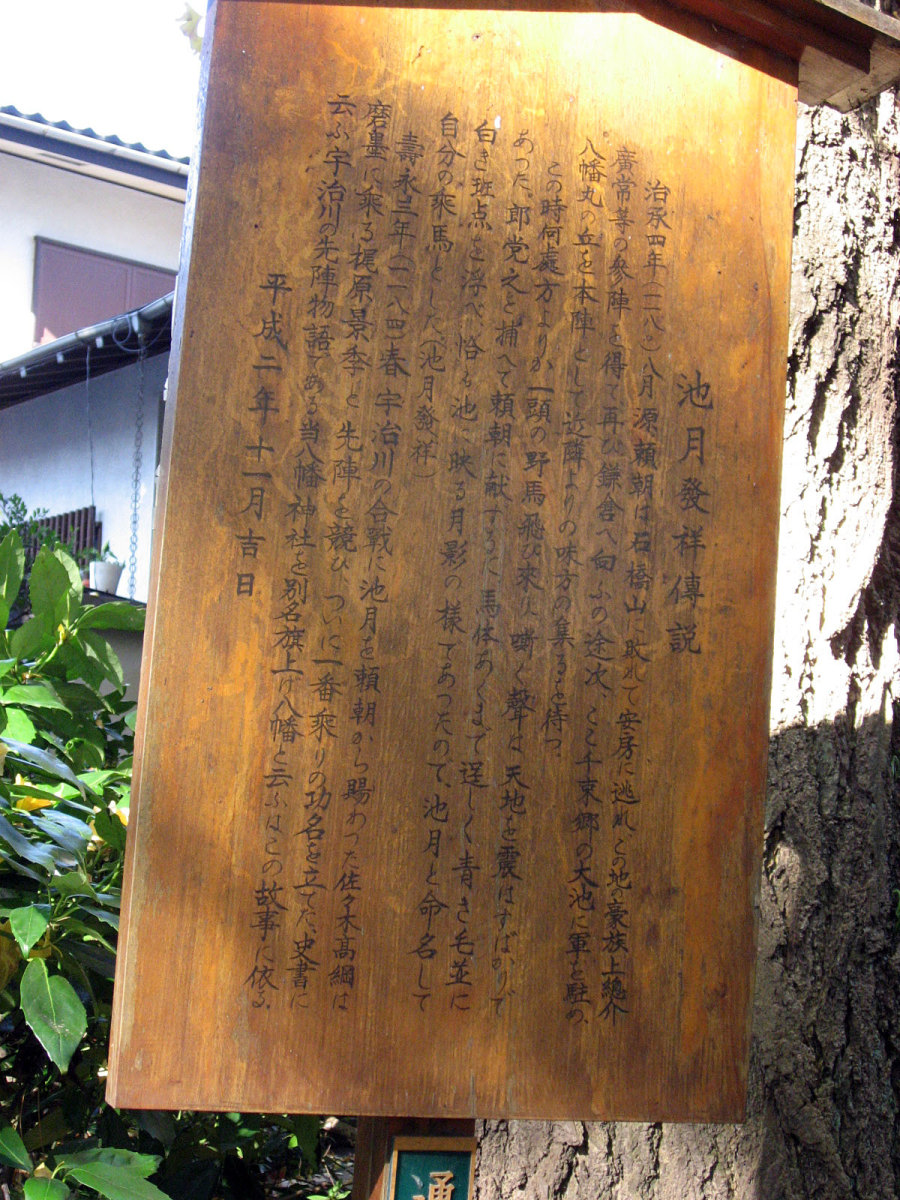 池月發祥傳説
治承四年(一一八〇)八月源頼朝は石橋山に敗れて安房に逃れこの地の豪族上總介
廣常等の参陣を得て再び鎌倉へ向ふの途次、ここ千束郷の大池に軍を駐め、
八幡丸の丘を本陣として近隣よりの味方の集るを待つ、
この時何處方よりか一頭の野馬飛び来り嘶く聲は天地を震はすばかりで
あった、郎党之と捕へて頼朝に献するに馬体あくまで逞しく青き毛並に
白き斑点を浮べ、恰も池に映る月影の様であつたので、池月と命名して
自分の乘馬とした(池月發祥)
壽永三年(一一八四)春宇治川の合戰に池月を頼朝から賜わつた佐々木髙綱は
磨墨に乘る梶原景季と先陣を競び、ついに一番乘りの功名を立てた、史書に
云ふ宇治川の先陣物語である当八幡神社を別名旗上げ八幡と云ふはこの故事に依る、
平成二年十一月吉日
通